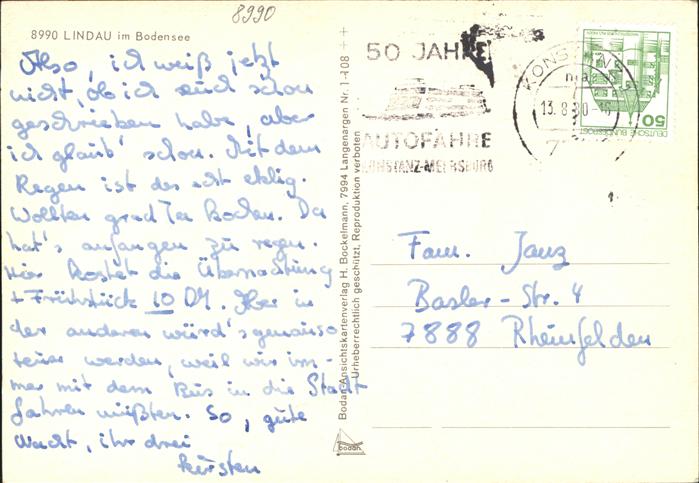 8990
8990 LINDAU im Bodensee
Also, ich weiß jetzt
nicht, ob ich euch schon
geschrieben habe, aber
ich glaub' schon. Mit dem
Regen ist das echt eklig.
Wollten grad baden. Da
hat's anfangen zu regen.
Hier kostet die Übernachtung
+ Frühstück 10 DM. Aber in
der anderen würd's genauso
teuer werden, weil wir im-
mer mit dem Bus in die Stadt
fahren müßten. So, gute
Nacht, ihr drei
Kirsten
Bodan-Ansichtskartenverlag H. Bockelmann, 7994 Langenargen Nr. 1-408 ++
Urheberrechtlich geschützt, Reproduktion verboten
bodan
50 JAHRE
AUTOFÄHRE
KONSTANZ-MEERSBURG
KONSTANZ
13.8.80-16
50
DEUTSCHE BUNDESPOST
Fam. Janz
Basler-Str. 4
7888 Rheinfelden